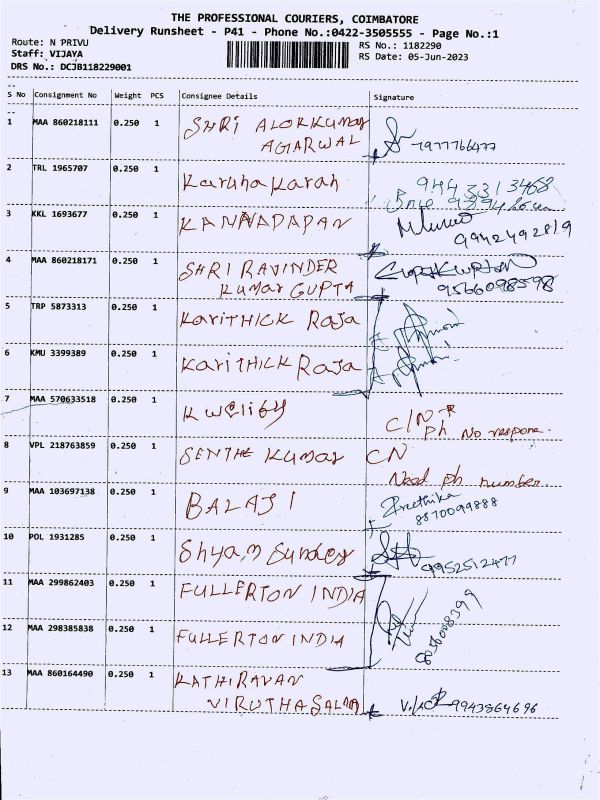 THE PROFESSIONAL COURIERS, COIMBATORE
Delivery Runsheet - P41 - Phone No.:0422-3505555 - Page No.:1
Route: N PRIVU
RS No.: 1182290
Staff: VIJAYA
RS Date: 05-Jun-2023
DRS No.: DCJB118229001
S No Consignment No Weight PCS Consignee Details Signature
1 MAA 860218111 0.250 1 SHRI ALOKKUMAR
AGARWAL 7977766477
2 TRL 1965707 0.250 1 Karunakaran 944 331 3468
3 KKL 1693677 0.250 1 KANNADAPAN
9942492819
4 MAA 860218171 0.250 1 SHRI RAVINDER
KUMAR GUPTA 9566098598
5 TRP 5873313 0.250 1 KARITHICK RAJA
6 KMU 3399389 0.250 1 KARITHICK RAJA
7 MAA 570633518 0.250 1 Kwality C/N
Ph No respone.
8 VPL 218763859 0.250 1 SENTHIL KUMAR CN
Need ph number.
9 MAA 103697138 0.250 1 BALAJI Preethika
8870099888
10 POL 1931285 0.250 1 Shyam Sunder
9952512477
11 MAA 299862403 0.250 1 FULLERTON INDIA
12 MAA 298385838 0.250 1 FULLERTON INDIA 8056008399
13 MAA 860164490 0.250 1 KATHIRAVAN
VIRUTHASALAM 9943864696